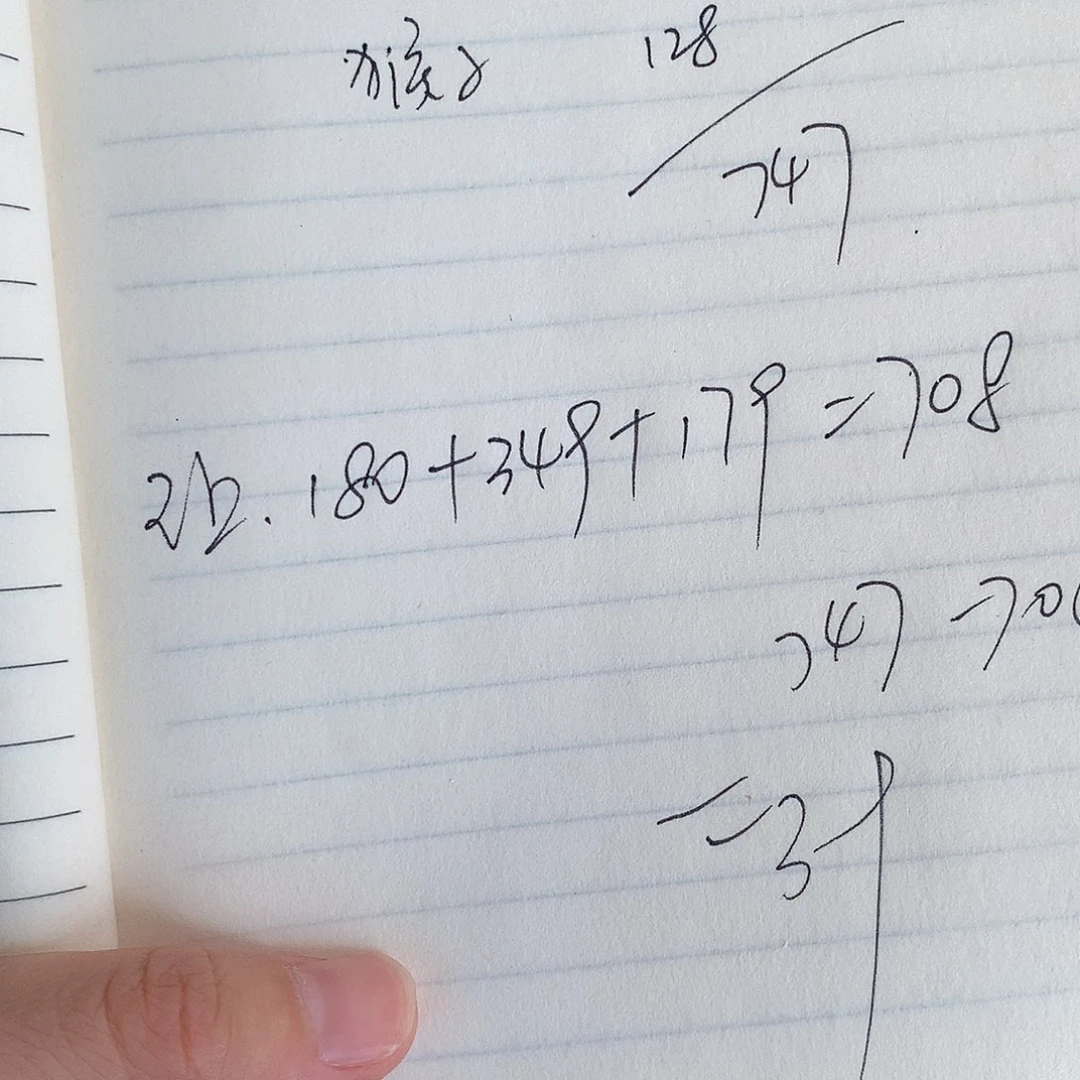 猴子 128
747
180+349+179=708
747-70
=39